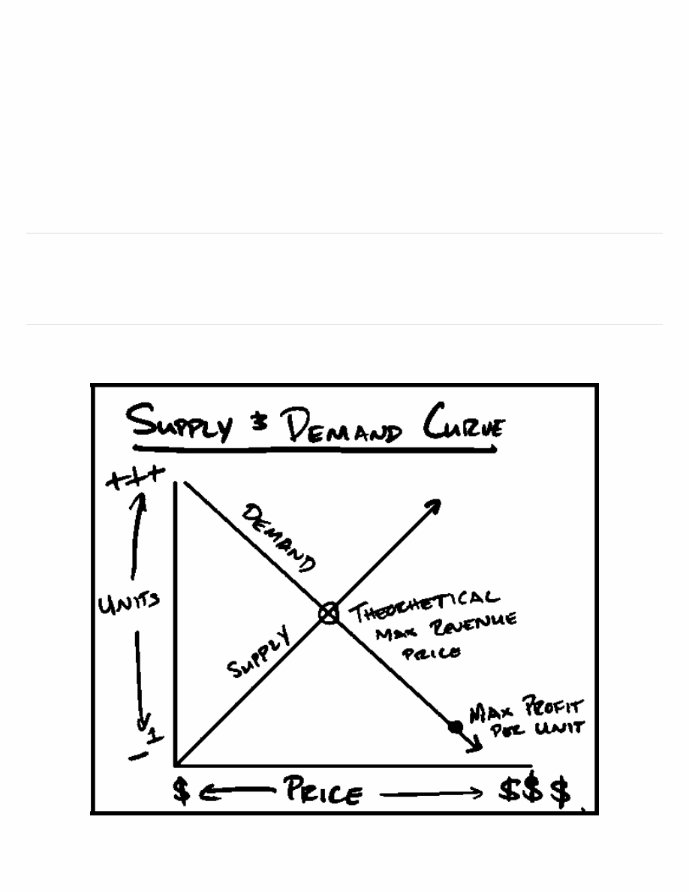 SUPPLY & DEMAND CURVE
+++
UNITS
1
-
DEMAND
SUPPLY
THEORHETICAL
MAX REVENUE
PRICE
MAX PROFIT
PER UNIT
$ PRICE $$$